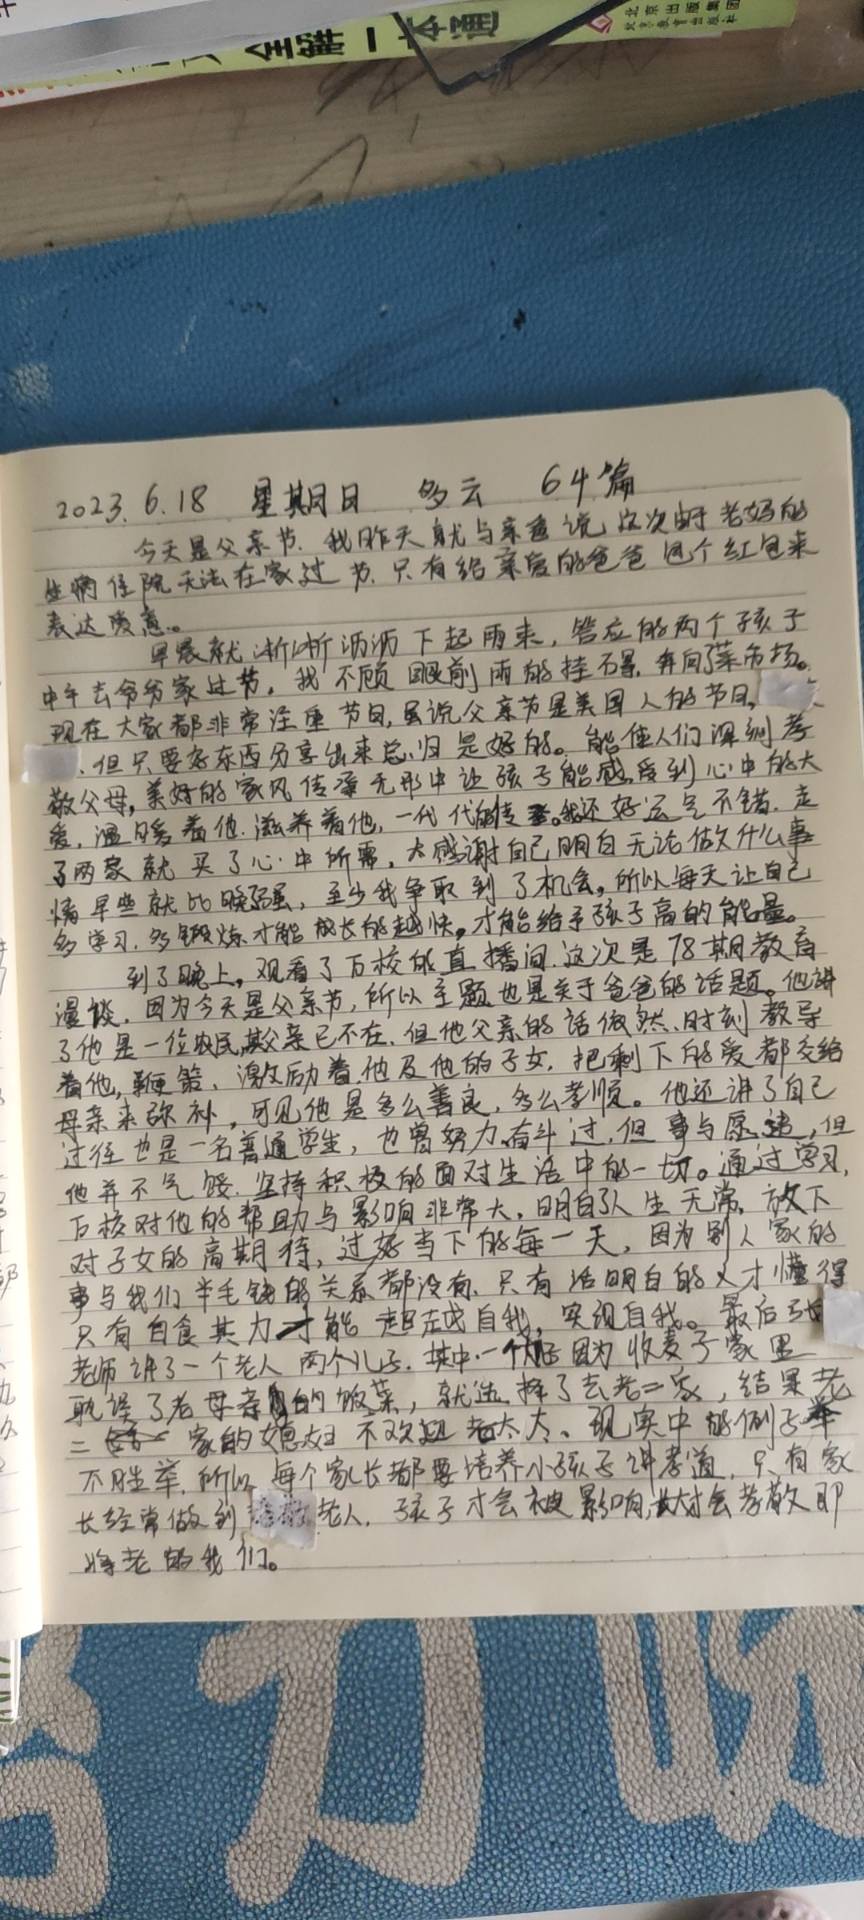 全解一本通
北京出版集团
北京教育出版社
2023.6.18 星期日 多云 64篇
今天是父亲节.我昨天就与亲爸说,这次由于老妈的
生病住院无法在家过节.只有给亲爱的爸爸包个红包来
表达爱意。
早晨就淅淅沥沥下起雨来,答应的两个孩子
中午去爷爷家过节。我不顾眼前雨的挂碍,奔向了菜市场。
现在大家都非常注重节日,虽说父亲节是美国人的节日,
、但只要好东西分享出来总归是好的。能使人们深刻孝
敬父母,美好的家风传承无形中让孩子能感受到心中的大
爱,温暖着他.滋养着他,一代代的传承。我还好运气不错.走
了两家就买了心中所需,太感谢自己明白无论做什么事
情早些就比晚强,至少我争取到了机会。所以每天让自己
多学习.多锻炼才能成长的越快。才能给予孩子高的能量。
到了晚上,观看了万校的直播间.这次是78期教育
漫谈.因为今天是父亲节,所以主题也是关于爸爸的话题。他讲
了他是一位农民,其父亲已不在.但他父亲的话依然、时刻教导
着他,鞭策、激励着他及他的子女.把剩下的爱都交给
母亲来弥补,可见他是多么善良,多么孝顺。他还讲了自己
过往也是一名普通学生,也曾努力奋斗过,但事与愿违,但
他并不气馁.坚持积极的面对生活中的一切。通过学习,
万校对他的帮助与影响非常大.明白了人生无常,放下
对子女的高期待,过好当下的每一天,因为别人家的
事与我们半毛钱的关系都没有.只有活明白的人才懂得
只有自食其力才能超越自我,实现自我。最后张
老师讲了一个老人两个儿子.其中一个儿子因为收麦子家里
耽误了老母亲的饭菜,就选择了去老二家,结果老
二家的媳妇不欢迎老太太。现实中的例子举
不胜举.所以每个家长都要培养小孩子讲孝道,只有家
长经常做到孝敬老人.孩子才会被影响,长大才会孝敬即
将老的我们。